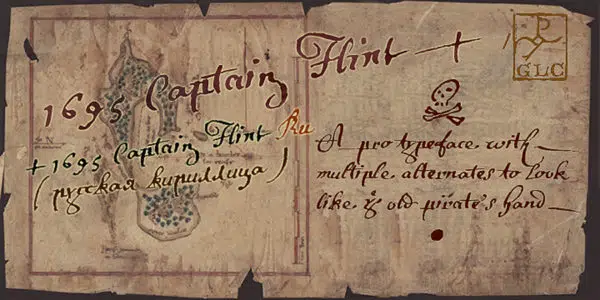 1695 Captain Flint +
+ 1695 Captain Flint Ru
(русская кириллица)
A pro typeface with
multiple alternates to look
like ẙ old pirate's hand
GLC